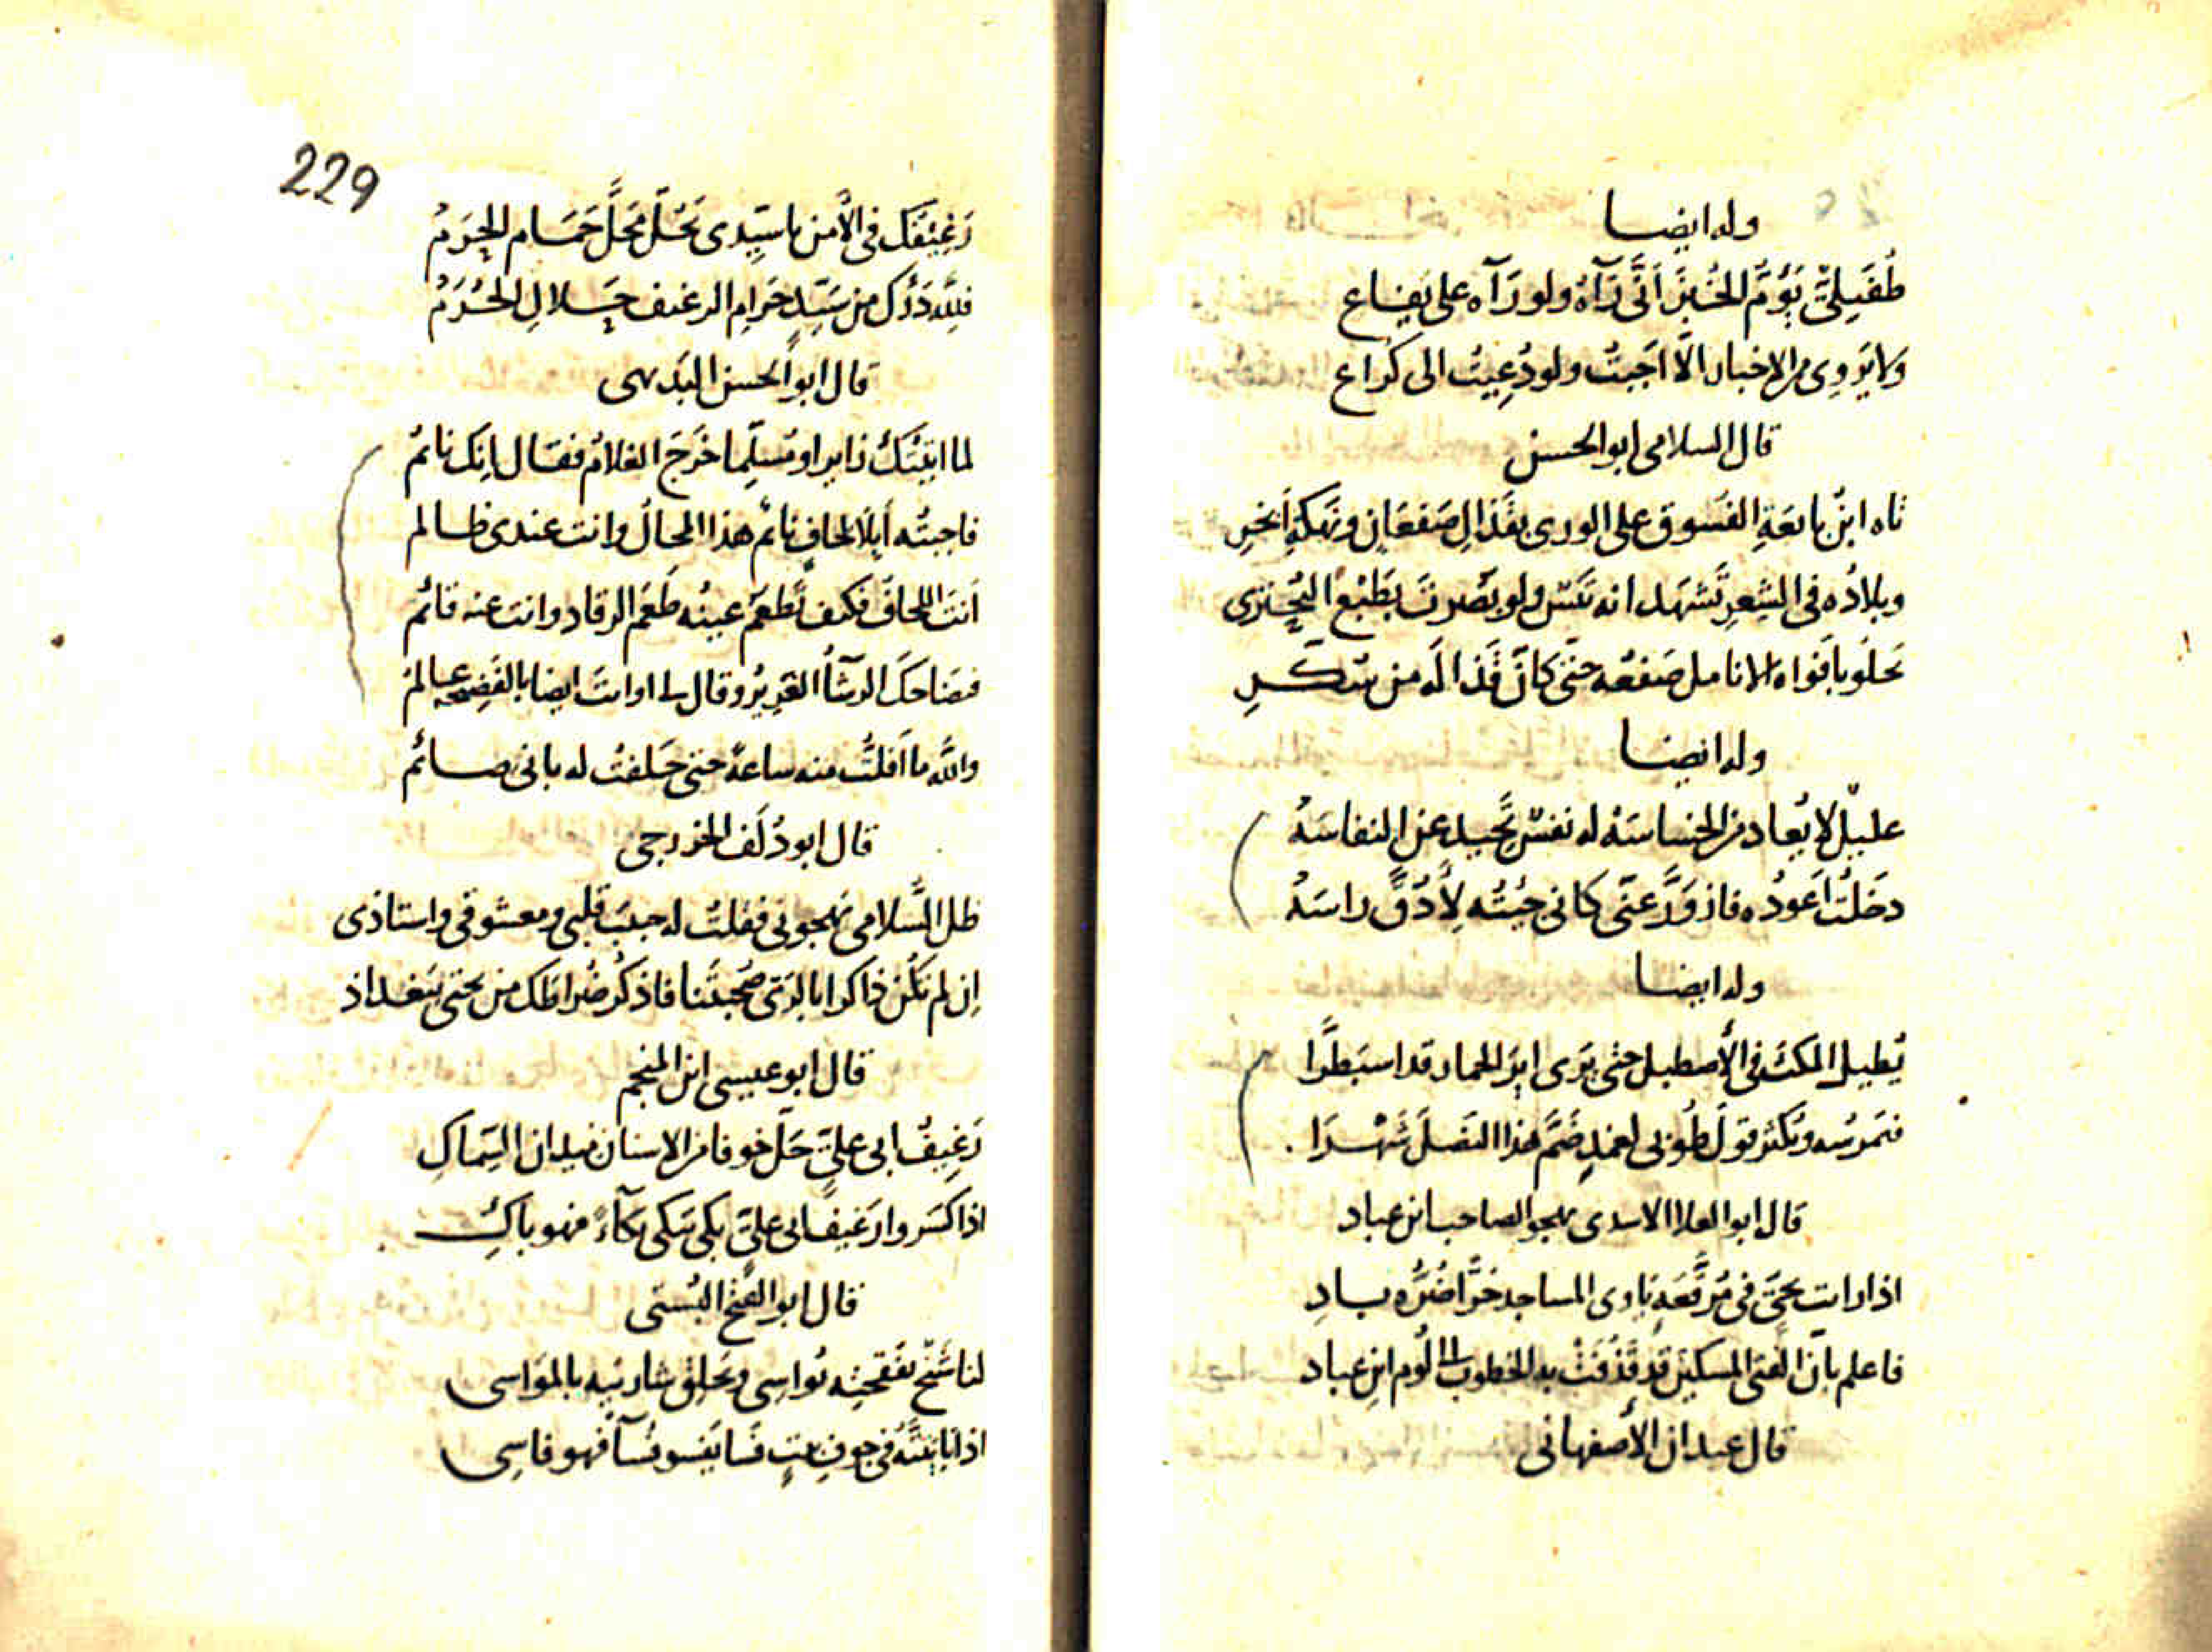 وله ايضا
طُفَيلِيٌّ يَؤُمُّ الخُبزَ اَنَّى رَآهُ ولو رَآه على يفاع
ولا يَروِى من الاخبار الّا اَجَبتُ ولو دُعِيتُ الى كراع
قال السلامى ابو الحسن
تاه ابنُ بائعةِ الفسوق على الورى بقَذالِ صَفعَانٍ ونَكهةِ اَبخرِ
وبلادُه فى الشِعرِ تَشهَد انه تَيْس ولو نُصرتَ بطَبْع البُحترى
تحلُو بافواه الانامل صَفعُه حتّى كانّ قَذالَه من سُكّرِ
وله ايضا
عليلٌ لا يُعاد من الخساسَهْ له نفسٌ تَحيد عن النفاسَهْ
دخلتُ اَعودُه فازوَرَّ عنّى كانى جِئتُه لِأدُقَّ راسَهْ
وله ايضا
يُطيل المكثَ فى الأصطبل حتى يَرى ايرَ الحمار قد اسبَطَرّا
فيَمرسُه ويُكثر قولَ طُوبى لغِمدٍ ضَمَّ هذا النصلَ شَهْرَا
قال ابو العلا الاسدى يهجو الصاحب ابن عباد
اذا رايت فى مُرَقَّعَةٍ ياوى المساجد حُرًّا ضُرُّه بادِ
فاعلم بانّ الفتى المسكينَ قد قَذَفَتْ به الخطوب الى لُوم ابن عباد
قال عبدان الأصفهانى
229
رَغِيفُك فى الأمن يا سَيِّدى تَحُلّ مَحَلَّ حَمَام الحَرَمْ
فلِلّه دَرُّك من سَيِّدٍ حَرامِ الرغيف حَلالِ الحُرَمْ
قال ابو الحسن البديهى
لما اتيتُك زايرا ومُسلِّما خَرَجَ الغلامُ فقال اِنَّك نائمُ
فاجبتُه أبلا لحافٍ نائم هذا المحالُ وانت عندى ظالم
اَنتَ اللحافُ فكيف تَطعَم عينُه طَعَم الرقاد وانت عنه قائم
فتضاحكَ الرشأُ الغريرُ وقال لى او انت ايضا بالفضيحه عالمُ
واللّه ما اَفلتُّ منه ساعةً حتى حَلفتُ له بانى صائم
قال ابو دُلَف الخزرجى
ظل السَّلامى يهجونى فقلتُ له حبيب قلبى ومعشوقى واستاذى
اِن لم تكُن ذاكرا بالرَىّ صُحبتَنا فاذكُر ضُراطَك من تحتى ببغداذ
قال ابو عيسى ابن المنجم
رَغِيفُ ابى علىّ حَلَّ خوفا من الاسنان ميدان السِماكِ
اذا كسَروا رغيفَ ابى علىّ بكى يبكى بُكآءً فهو باكِ
قال ابو الفتح البُستى
لنا شَيْخٌ بفَقحتِه يُواسى ويَحلِق شاربَيه بالمَواسى
اذا بايتّه فى جوف بيتٍ فَسا يفسو فُسآءً فهو فاسى